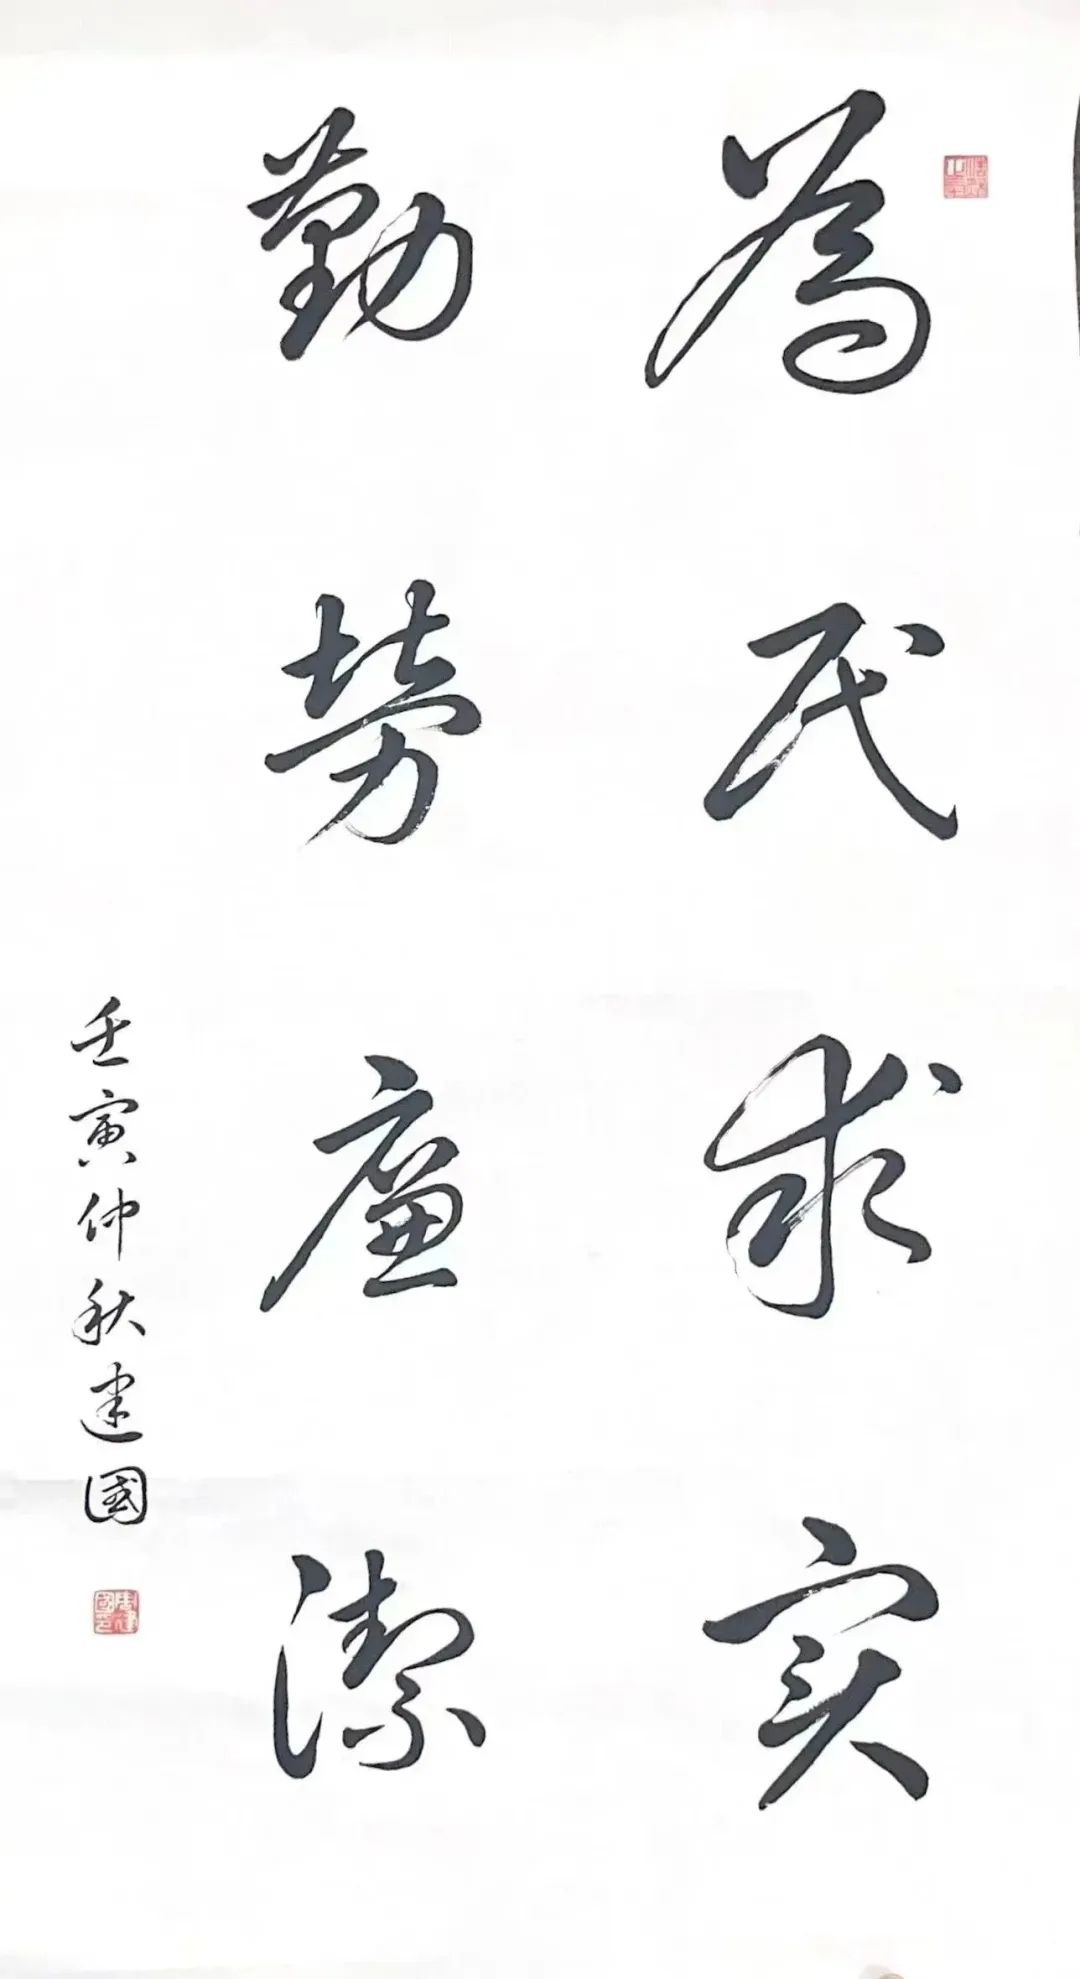 為民求实
勤勞廉潔
壬寅仲秋建國